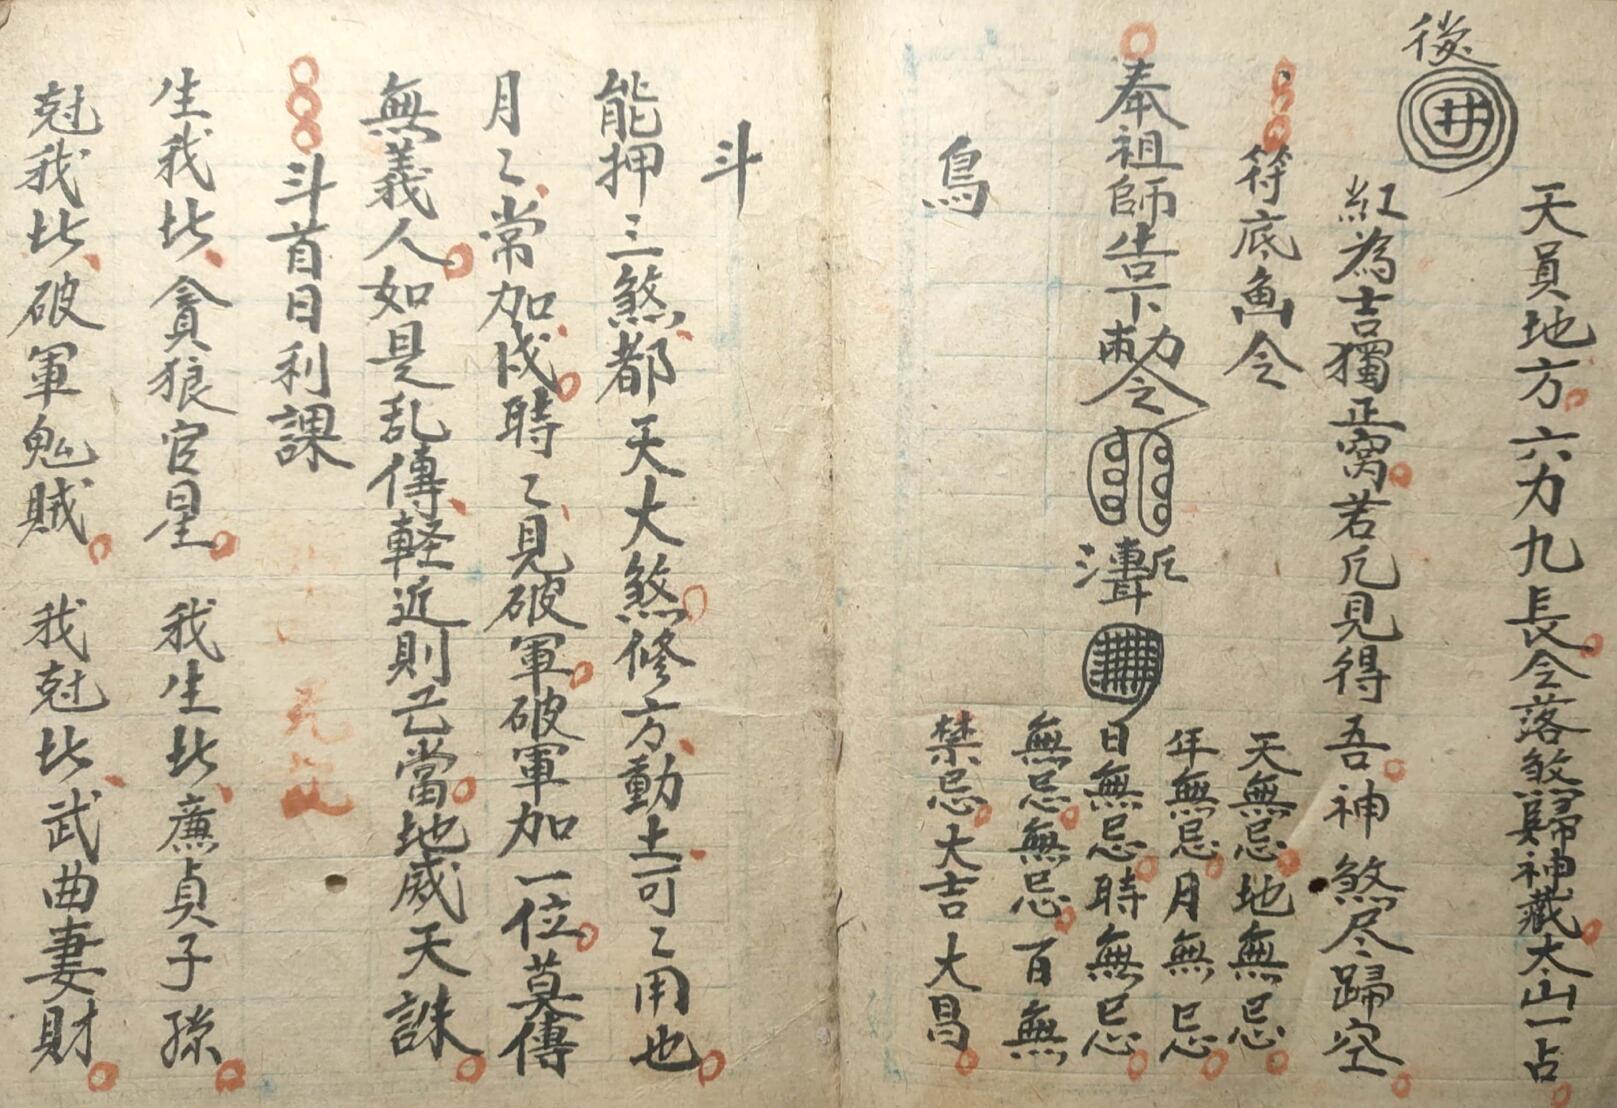 後
天員地方六力九長令落煞歸神藏太山一占
紅為吉獨正窩若凡見得吾神煞尽歸空
符底画令
奉祖師告下敕令
天無忌地無忌
年無忌月無忌
日無忌時無忌
無忌無忌百無
禁忌大吉大昌
鳥
斗
能押三煞都天大煞修方動土可〻用也
月〻常加戌時〻見破軍破軍加一位莫傳
無義人如是乱傳輕近則亡當地威天誅
斗首日利課
生我比貪狼官星 我生比廉貞子孫
尅我比破軍鬼賊 我尅比武曲妻財